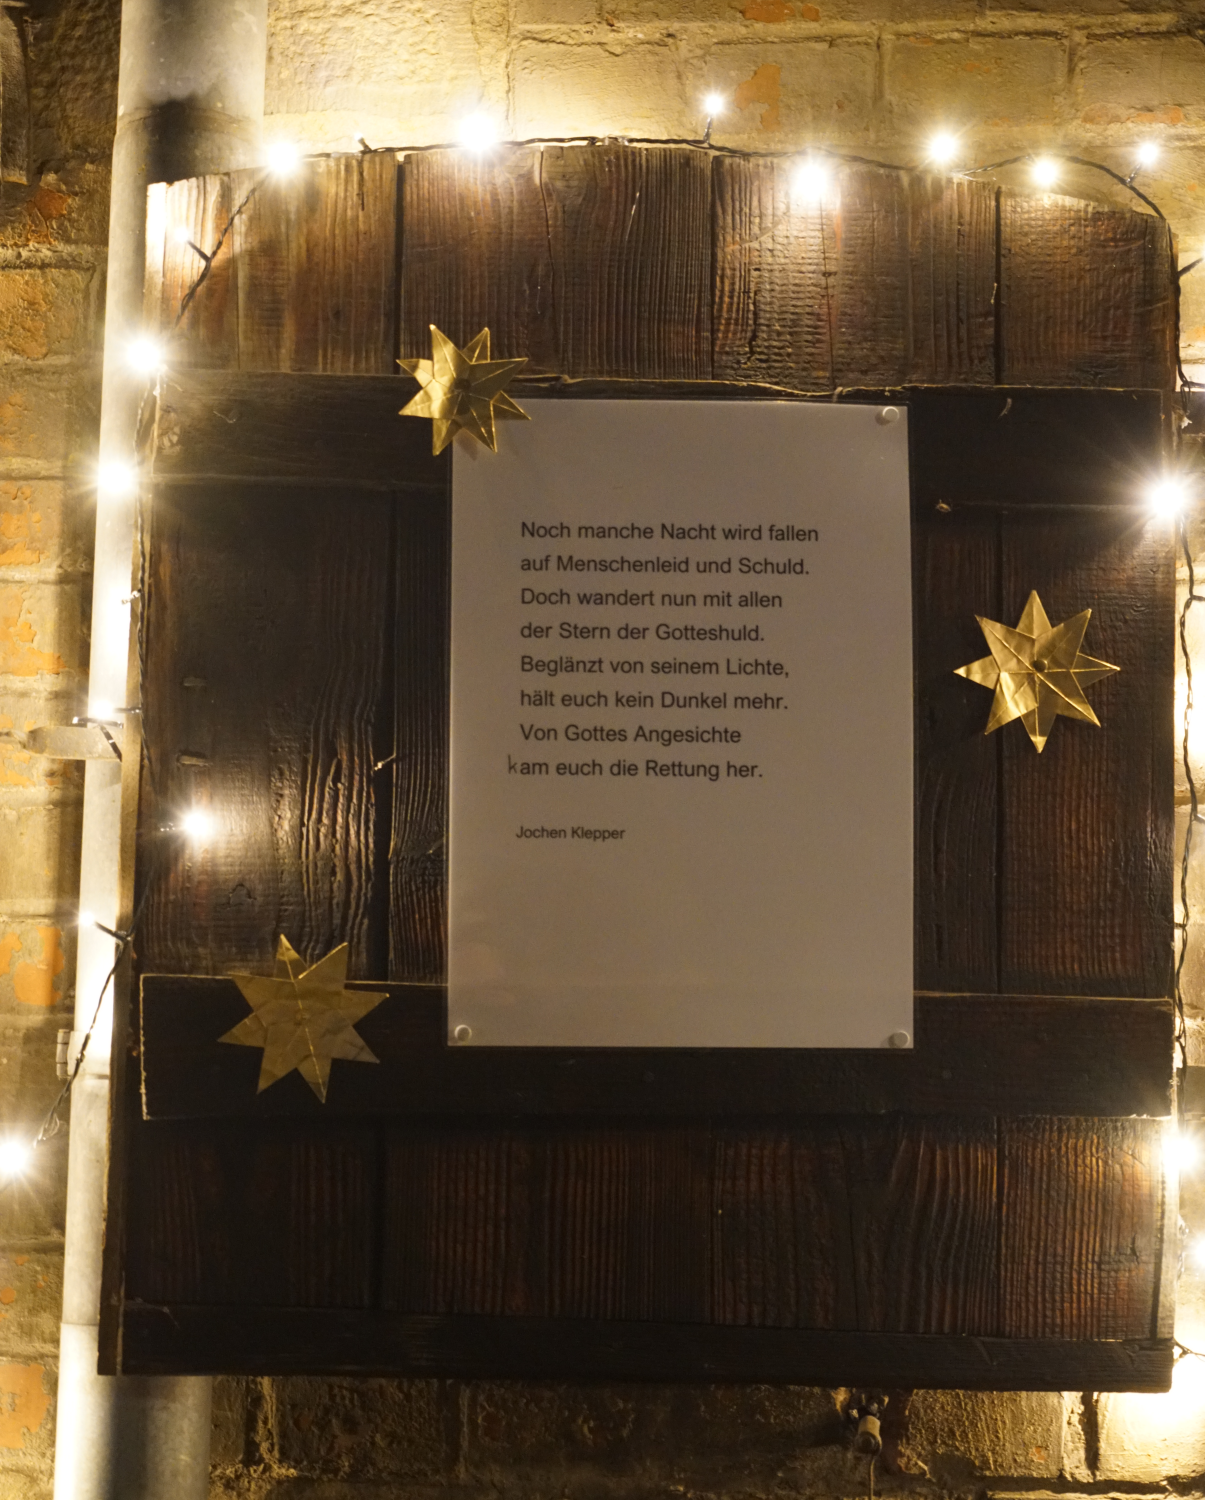 Noch manche Nacht wird fallen
auf Menschenleid und Schuld.
Doch wandert nun mit allen
der Stern der Gotteshuld.
Beglänzt von seinem Lichte,
hält euch kein Dunkel mehr.
Von Gottes Angesichte
kam euch die Rettung her.
Jochen Klepper